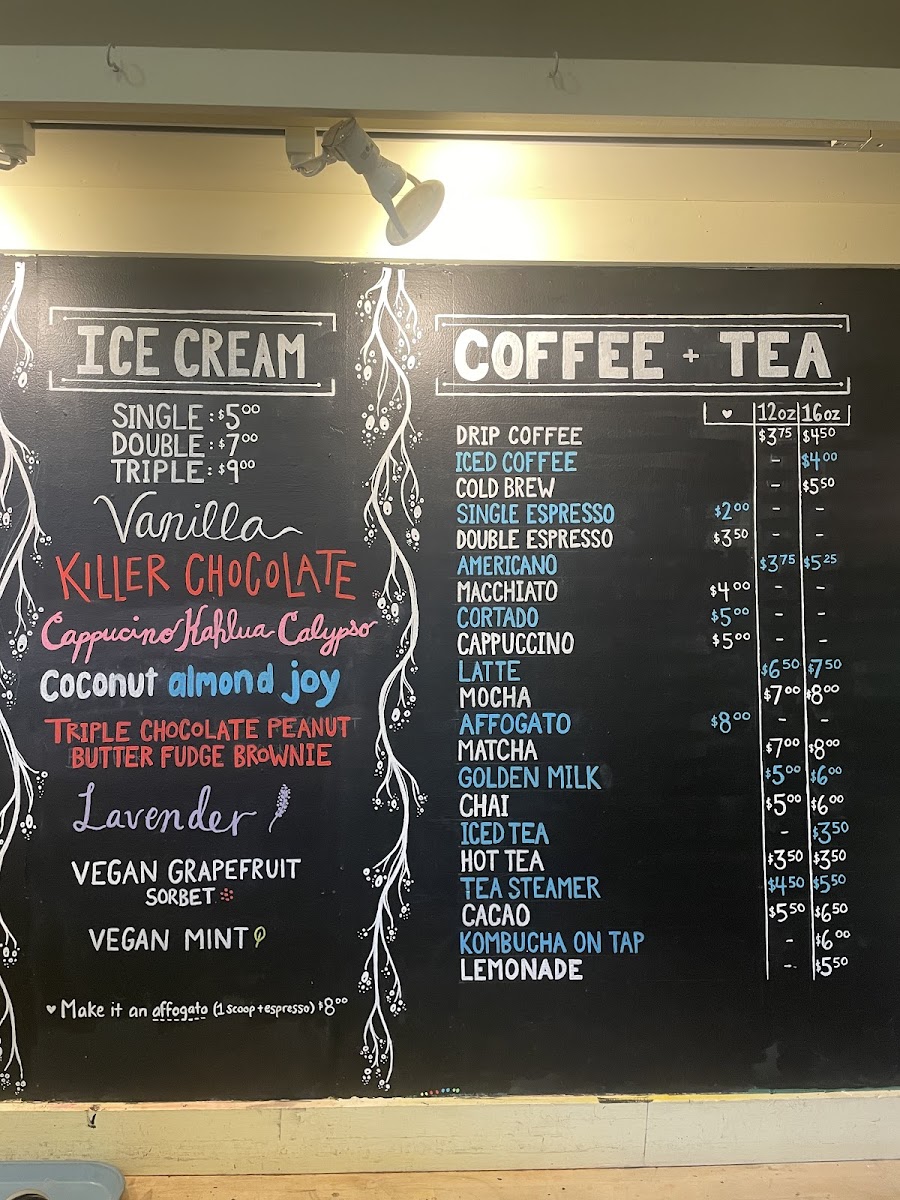 ICE CREAM
SINGLE: $5⁰⁰
DOUBLE: $7⁰⁰
TRIPLE: $9⁰⁰
Vanilla
KILLER CHOCOLATE
Cappucino Kahlua Calypso
Coconut almond joy
TRIPLE CHOCOLATE PEANUT
BUTTER FUDGE BROWNIE
Lavender
VEGAN GRAPEFRUIT
SORBET
VEGAN MINT
♥ Make it an affogato (1 scoop + espresso) $8⁰⁰
COFFEE + TEA
♥ 12oz 16oz
DRIP COFFEE $3⁷⁵ $4⁵⁰
ICED COFFEE - $4⁰⁰
COLD BREW - $5⁵⁰
SINGLE ESPRESSO $2⁰⁰ - -
DOUBLE ESPRESSO $3⁵⁰ - -
AMERICANO $3⁷⁵ $5²⁵
MACCHIATO $4⁰⁰ - -
CORTADO $5⁰⁰ - -
CAPPUCCINO $5⁰⁰ - -
LATTE $6⁵⁰ $7⁵⁰
MOCHA $7⁰⁰ $8⁰⁰
AFFOGATO $8⁰⁰ - -
MATCHA $7⁰⁰ $8⁰⁰
GOLDEN MILK $5⁰⁰ $6⁰⁰
CHAI $5⁰⁰ $6⁰⁰
ICED TEA - $3⁵⁰
HOT TEA $3⁵⁰ $3⁵⁰
TEA STEAMER $4⁵⁰ $5⁵⁰
CACAO $5⁵⁰ $6⁵⁰
KOMBUCHA ON TAP - $6⁰⁰
LEMONADE - $5⁵⁰